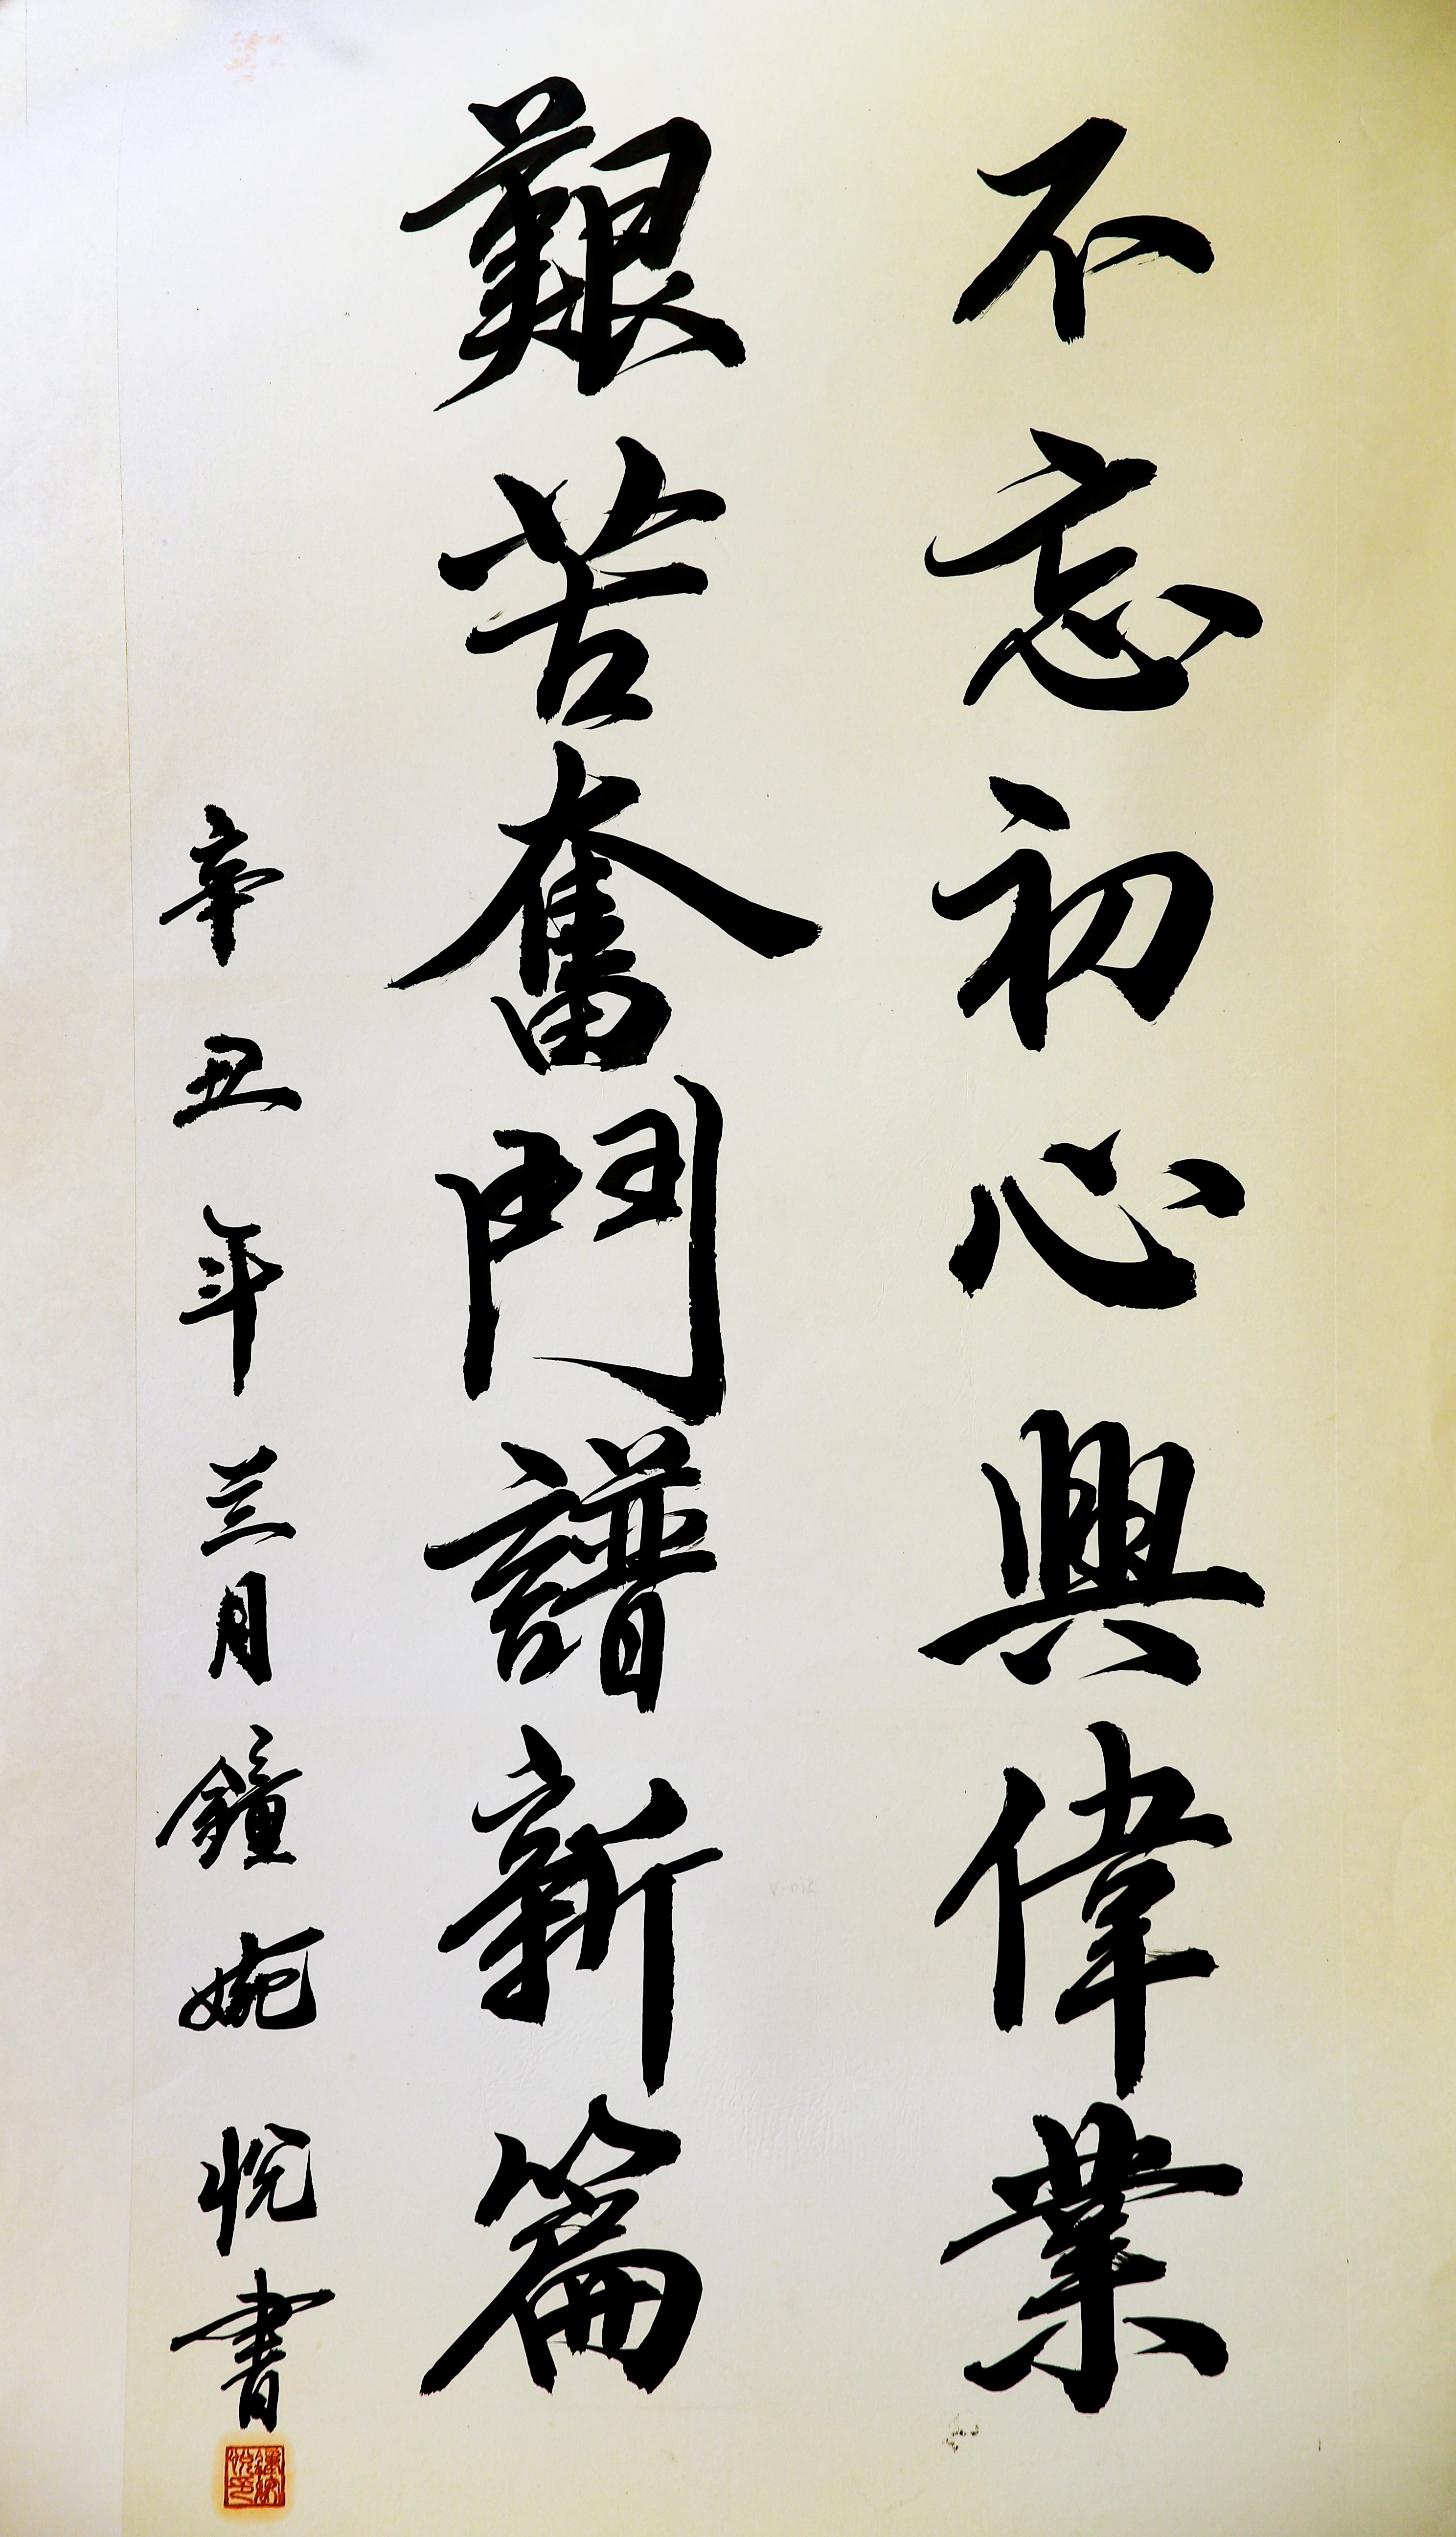 不忘初心興偉業
艱苦奮鬥譜新篇
辛丑年三月鐘婉悅書